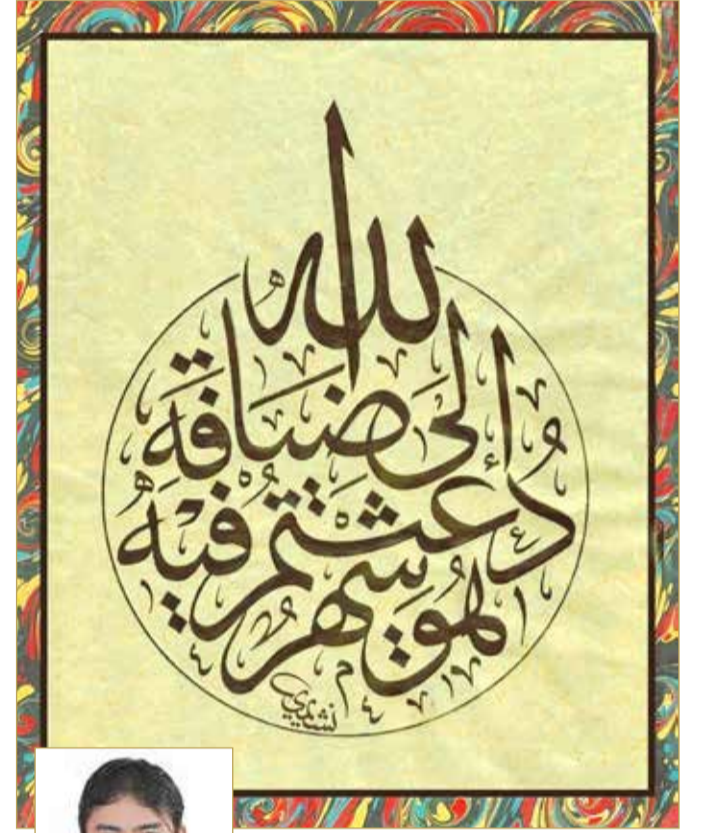 هُوَ شَهرٌ
دُعيتُم فيهِ
إلىَ ضيَافَة
الله